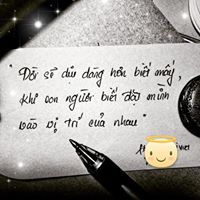 "Đời sẽ dịu dàng hơn biết mấy,
khi con người biết đặt mình
vào vị trí của nhau"